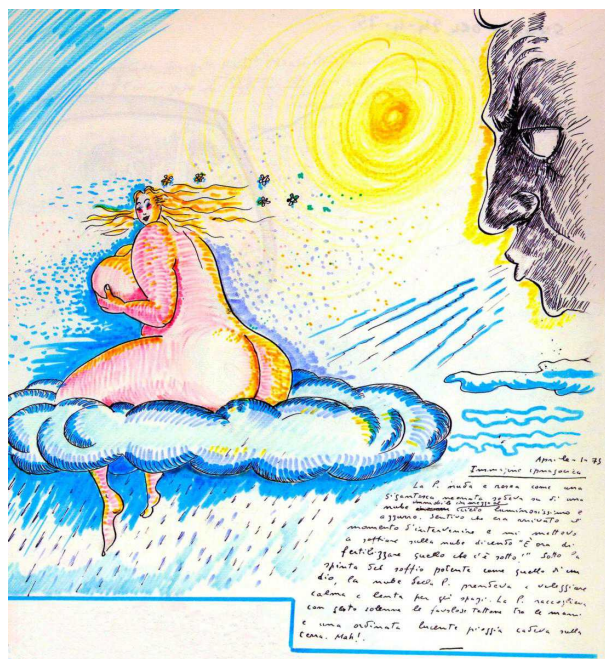 Aprile - 1 - 75
Immagine ipnagogica
La P. nuda e rosea come una
gigantesca neonata sedeva su di una
nube immobile in mezzo al cielo luminosissimo e
azzurro. Sentivo che era arrivato il
momento d'intervenire e mi mettevo
a soffiare sulla nube dicendo "È ora di
fertilizzare quello che c'è sotto!" Sotto la
spinta del soffio potente come quello di un
dio, la nube della P. prendeva a veleggiare
calma e lenta per gli spazi. La P. raccoglieva
con gesto solenne le favolose tettone tra le mani
e una ordinata lucente pioggia cadeva sulla
terra. Mah!.